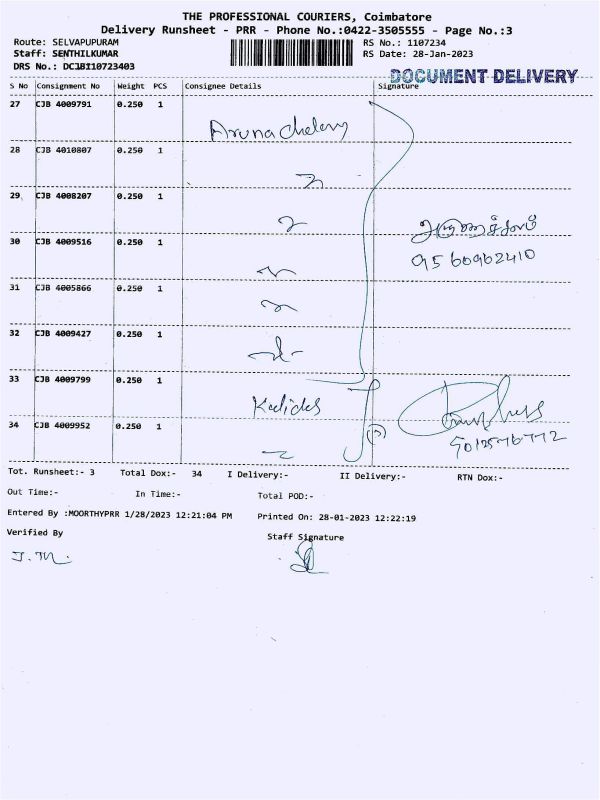 THE PROFESSIONAL COURIERS, Coimbatore
Delivery Runsheet - PRR - Phone No.:0422-3505555 - Page No.:3
Route: SELVAPUPURAM RS No.: 1107234
Staff: SENTHILKUMAR RS Date: 28-Jan-2023
DRS No.: DCJBI10723403
DOCUMENT DELIVERY
S No Consignment No Weight PCS Consignee Details Signature
27 CJB 4009791 0.250 1
Arunachelam
28 CJB 4010807 0.250 1
29 CJB 4008207 0.250 1
அருணாச்சலம்
30 CJB 4009516 0.250 1
9560902410
31 CJB 4005866 0.250 1
32 CJB 4009427 0.250 1
33 CJB 4009799 0.250 1
Kalidas
34 CJB 4009952 0.250 1
Tot. Runsheet:- 3 Total Dox:- 34 I Delivery:- II Delivery:- RTN Dox:-
Out Time:- In Time:- Total POD:-
Entered By :MOORTHYPRR 1/28/2023 12:21:04 PM Printed On: 28-01-2023 12:22:19
Verified By Staff Signature